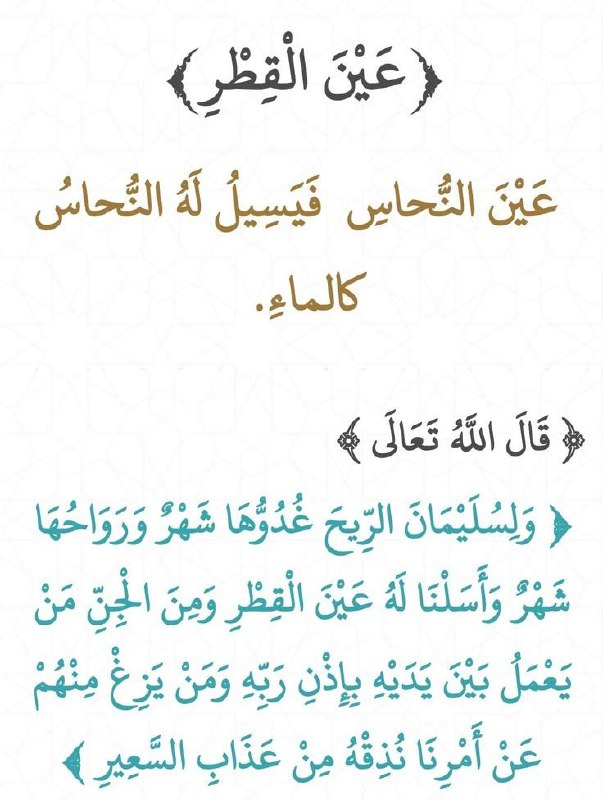 ﴿عَيْنَ الْقِطْرِ﴾
عَيْنَ النُّحاسِ فَيَسِيلُ لَهُ النُّحاسُ
كالماءِ.
﴿ قَالَ اللَّهُ تَعَالَى ﴾
﴿ وَلِسُلَيْمَانَ الرِّيحَ غُدُوُّهَا شَهْرٌ وَرَوَاحُهَا
شَهْرٌ وَأَسَلْنَا لَهُ عَيْنَ الْقِطْرِ وَمِنَ الْجِنِّ مَنْ
يَعْمَلُ بَيْنَ يَدَيْهِ بِإِذْنِ رَبِّهِ وَمَنْ يَزِغْ مِنْهُمْ
عَنْ أَمْرِنَا نُذِقْهُ مِنْ عَذَابِ السَّعِيرِ ﴾